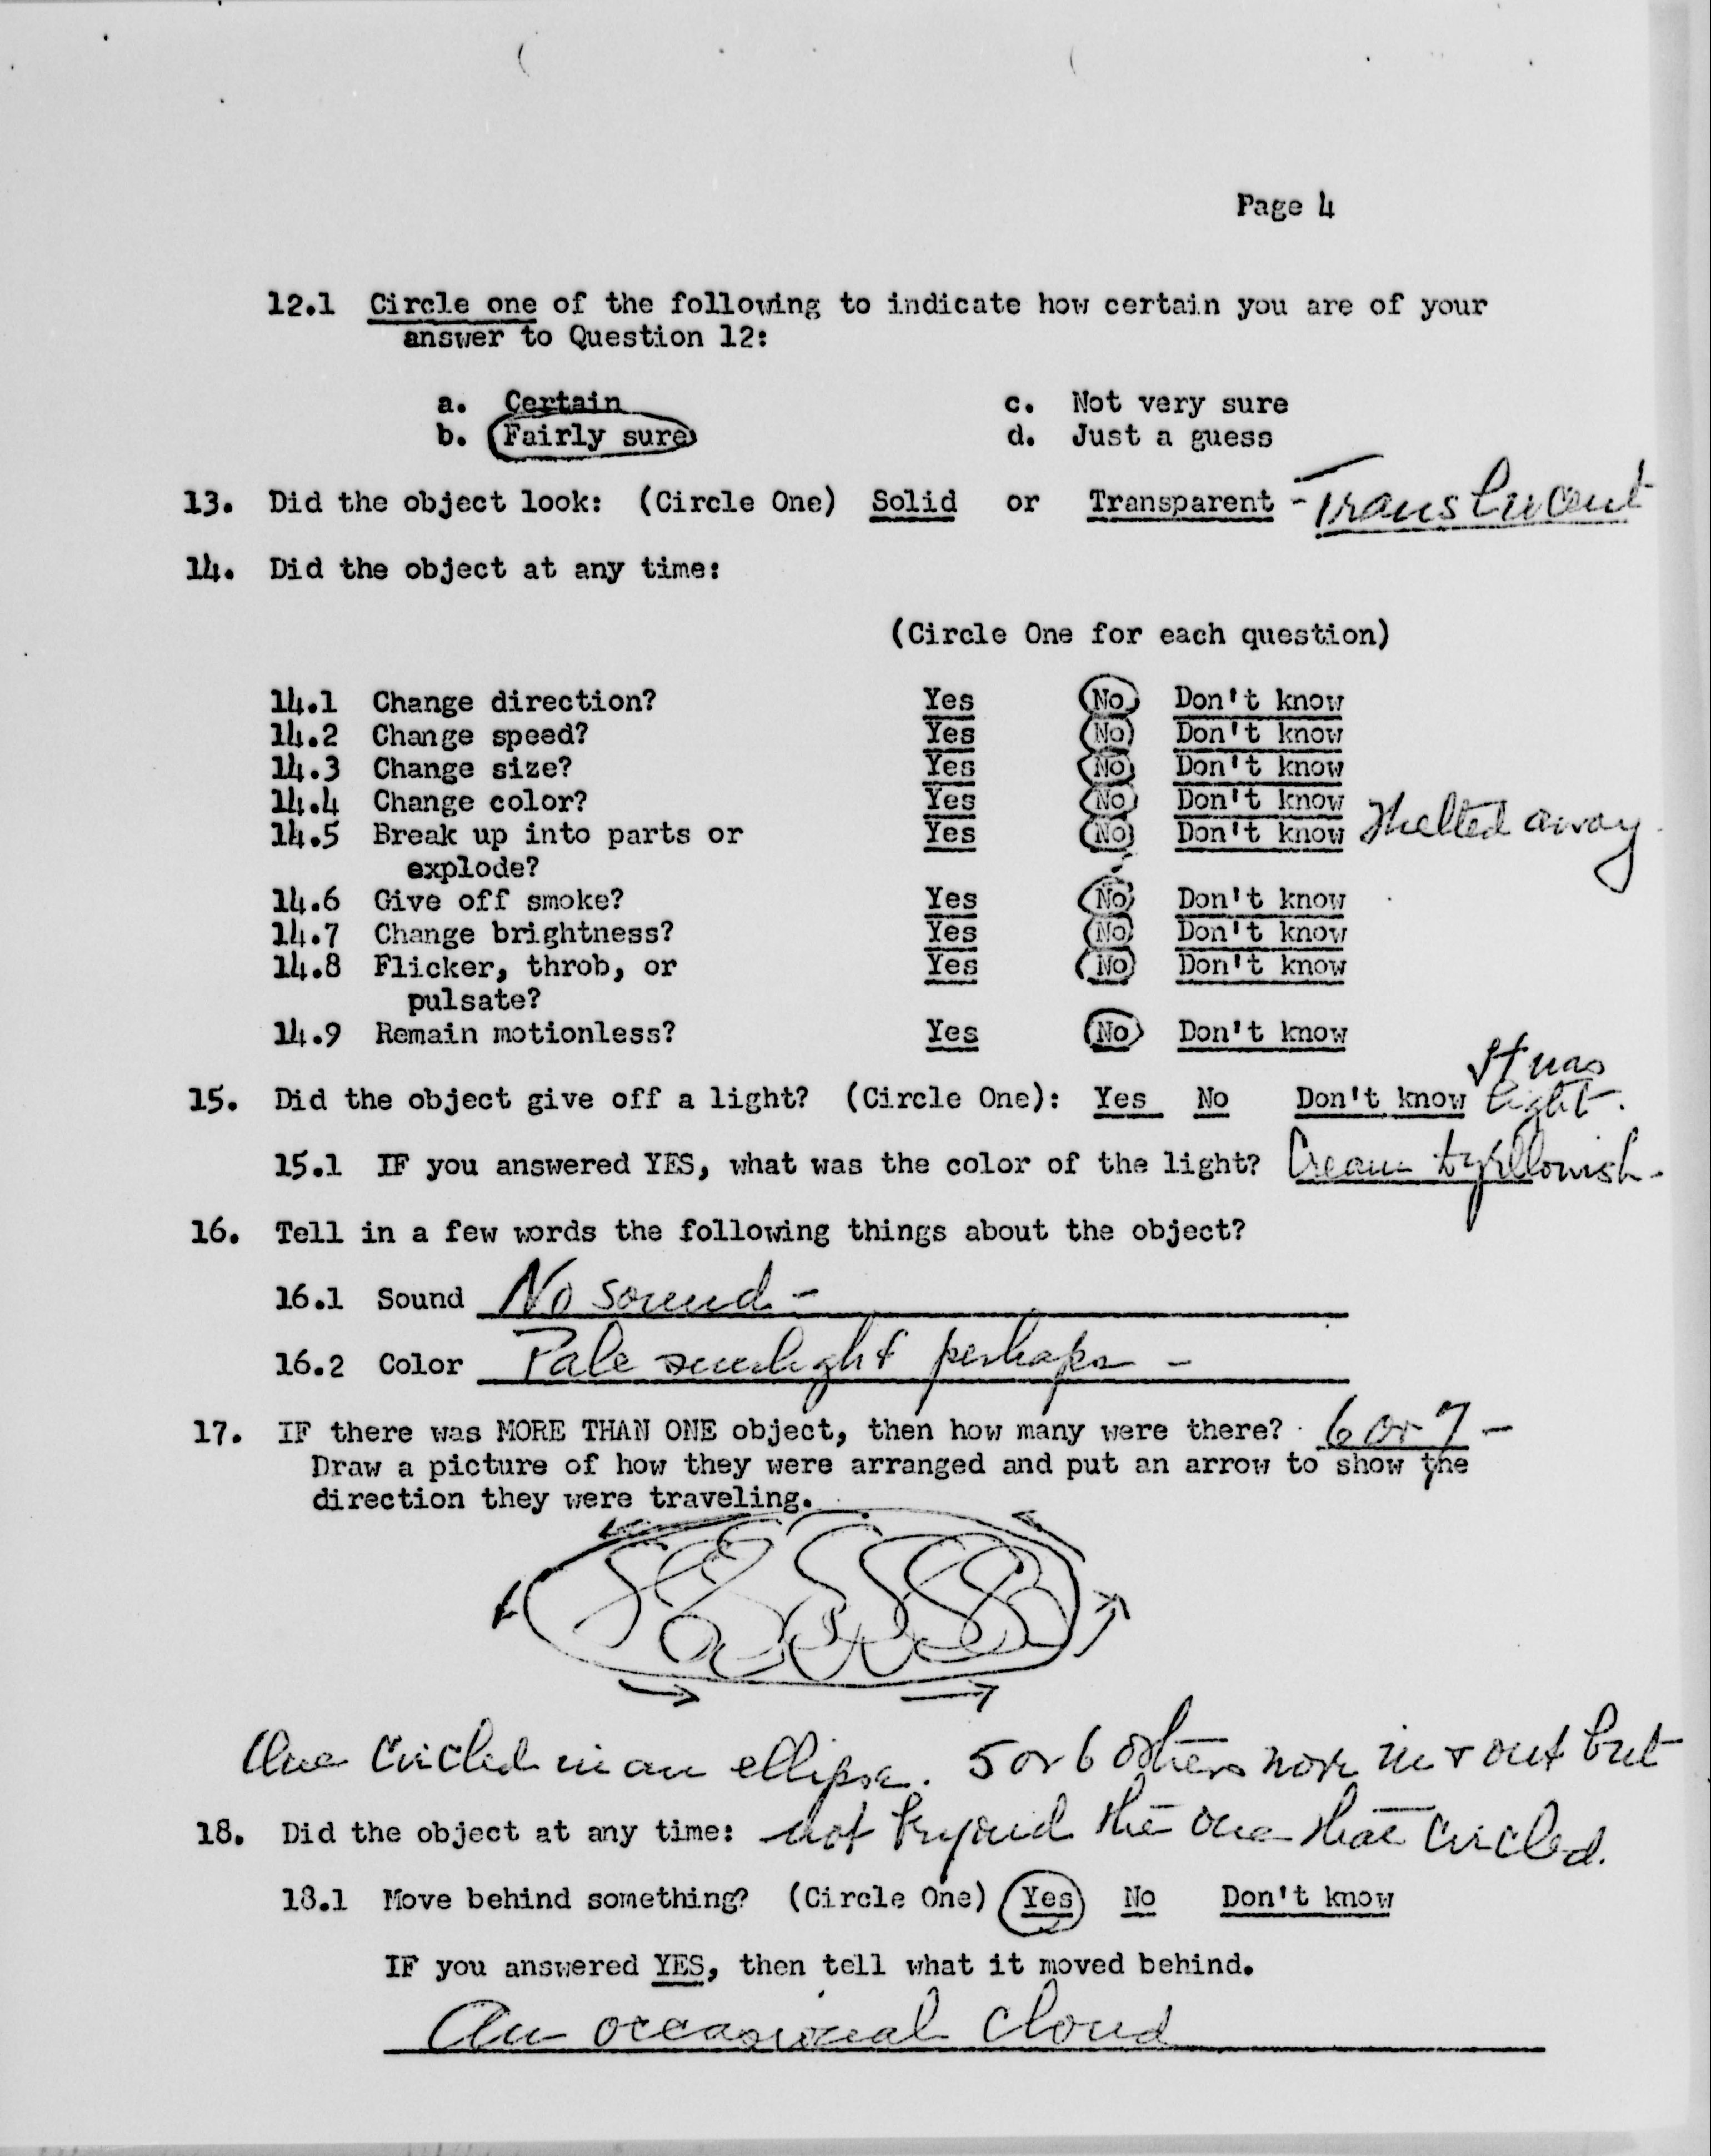 Page 4
12.1 Circle one of the following to indicate how certain you are of your
answer to Question 12:
a. Certain c. Not very sure
b. Fairly sure d. Just a guess
13. Did the object look: (Circle One) Solid or Transparent - Translucent
14. Did the object at any time:
(Circle One for each question)
14.1 Change direction? Yes No Don't know
14.2 Change speed? Yes No Don't know
14.3 Change size? Yes No Don't know
14.4 Change color? Yes No Don't know
14.5 Break up into parts or Yes No Don't know Melted away
explode?
14.6 Give off smoke? Yes No Don't know
14.7 Change brightness? Yes No Don't know
14.8 Flicker, throb, or Yes No Don't know
pulsate?
14.9 Remain motionless? Yes No Don't know
It was
15. Did the object give off a light? (Circle One): Yes No Don't know light.
15.1 IF you answered YES, what was the color of the light? Cream to yellowish -
16. Tell in a few words the following things about the object?
16.1 Sound No sound -
16.2 Color Pale sunlight perhaps -
17. IF there was MORE THAN ONE object, then how many were there? 6 or 7 -
Draw a picture of how they were arranged and put an arrow to show the
direction they were traveling.
One circled in an ellipse. 5 or 6 others in + out but
18. Did the object at any time: not beyond the one that circled.
18.1 Move behind something? (Circle One) Yes No Don't know
IF you answered YES, then tell what it moved behind.
An occasional cloud